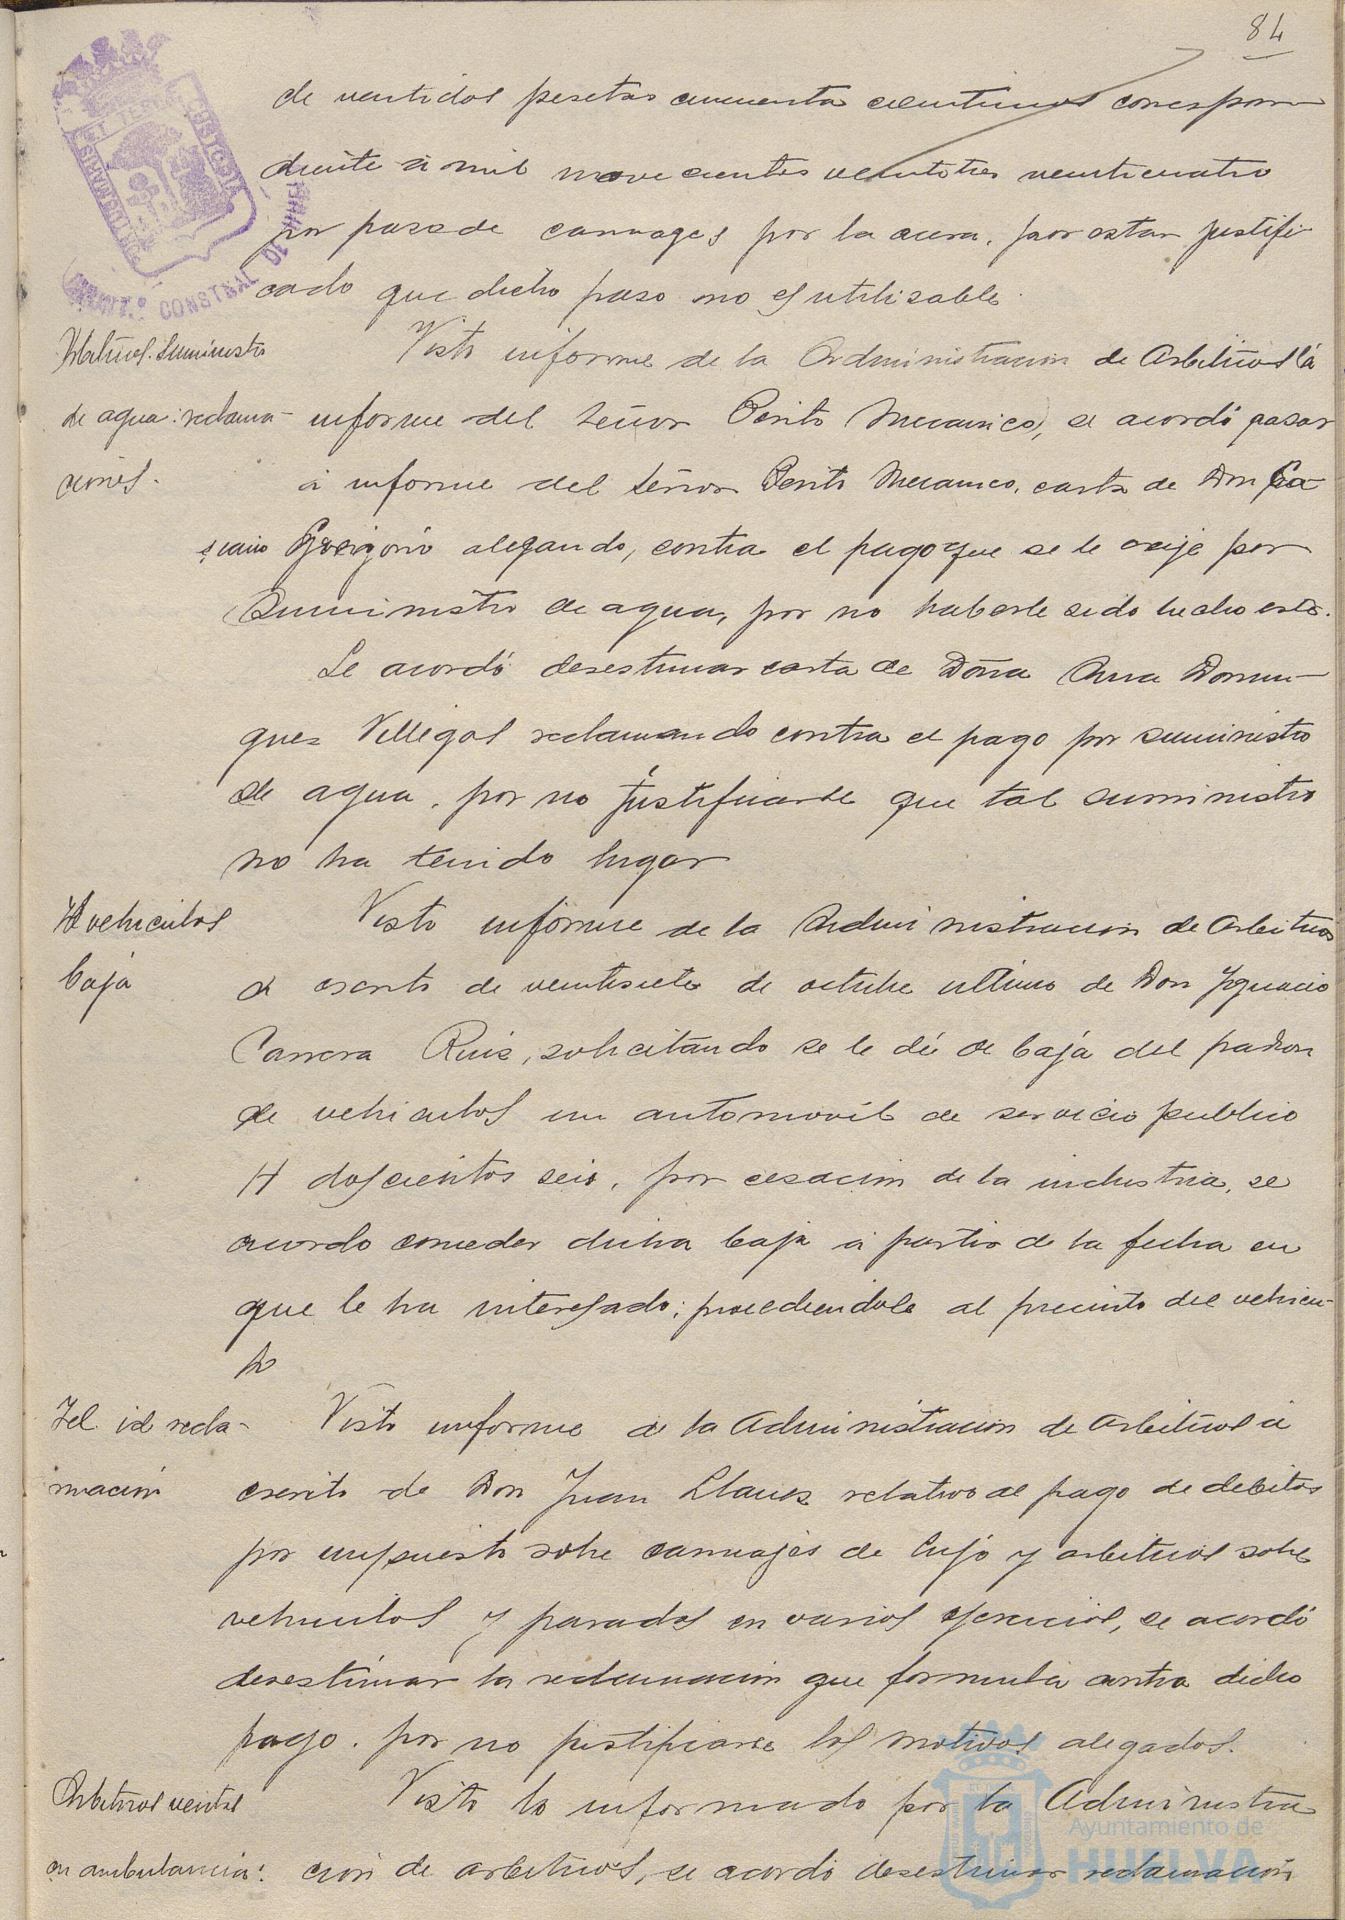 84
de ventidos pesetas cincuenta centimos correspon
diente á mil novecientos veintitres veinticuatro
por paso de carruages por la acera, por estar justifi
cado que dicho paso no es utilizable.
AYUNT.º CONSTNAL DE HUELVA
Suministro
de agua: reclama-
ciones.
Visto informe de la Administracion de Arbitrios á
informe del Señor Perito Mecanico, se acordó pasar
á informe del Señor Perito Mecanico, carta de Don Ca
siano Gregorio alegando, contra el pago que se le exije por
Suministro de agua, por no haberle sido hecho este.
Se acordó desestimar carta de Doña Ana Domin-
guez Villegas reclamando contra el pago por suministro
de agua, por no justificarse que tal suministro
no ha tenido lugar
Id vehiculos
baja
Visto informe de la Administracion de Arbitrios
á escrito de ventisiete de octubre ultimo de Don Ygnacio
Carrera Ruiz, solicitando se le dé de baja del padron
de vehiculos un automovil de servicio publico
H doscientos seis, por cesacion de la industria, se
acordo conceder dicha baja á partir de la fecha en
que le ha interesado; procediendole al precinto del vehicu-
lo
Id id recla-
mación
Visto informe de la Administracion de Arbitrios á
escrito de Don Juan relativo al pago de debitos
por impuesto sobre carruajes de lujo y arbitrios sobre
vehiculos y paradas en varios ejercicios, se acordó
desestimar la reclamacion que formula contra dicho
pago. por no justificarse los motivos alegados.
Arbitrios ventas
en ambulancia:
Visto lo informado por la Administra
ción de arbitrios, se acordó desestimar reclamación
Ayuntamiento de
HUELVA